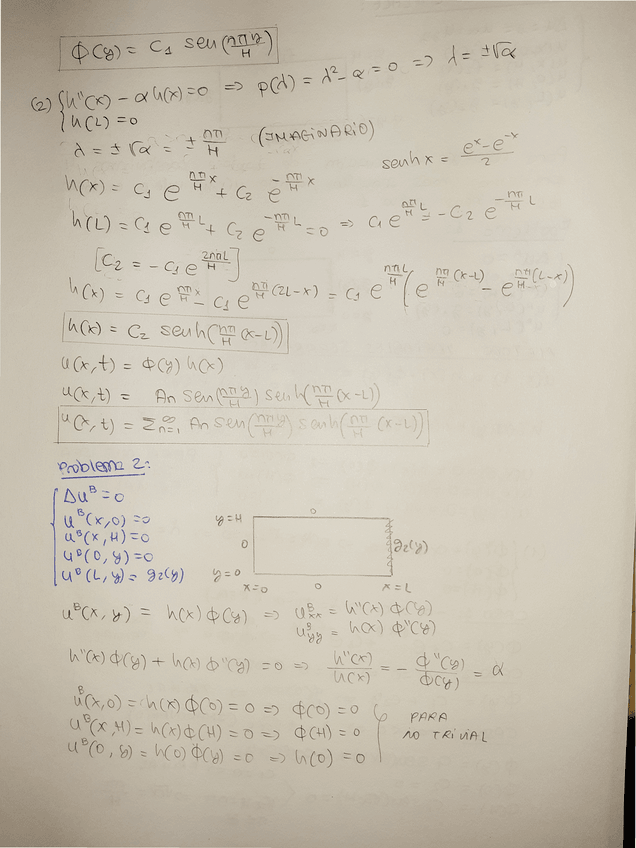 Φ(y) = C₁ sen(nπy/H)
(2) { h''(x) - αh(x) = 0 ⇒ p(λ) = λ² - α = 0 ⇒ λ = ±√α
h(L) = 0
λ = ±√α = ± nπ/H (IMAGINARIO)
senh x = (e^x - e^-x)/2
h(x) = C₁ e^(nπ/H x) + C₂ e^(-nπ/H x)
h(L) = C₁ e^(nπ/H L) + C₂ e^(-nπ/H L) = 0 ⇒ C₁ e^(nπ/H L) = -C₂ e^(-nπ/H L)
[C₂ = -C₁ e^(2nπL/H)]
h(x) = C₁ e^(nπ/H x) - C₁ e^(nπ/H (2L-x)) = C₁ e^(nπL/H) (e^(nπ/H (x-L)) - e^(nπ/H (L-x)))
h(x) = C₂ senh(nπ/H (x-L))
u(x,t) = Φ(y) h(x)
u(x,t) = An sen(nπy/H) senh(nπ/H (x-L))
u(x,t) = Σ_{n=1}^∞ An sen(nπy/H) senh(nπ/H (x-L))
Problema 2:
{ Δu^B = 0
u^B(x,0) = 0
u^B(x,H) = 0
u^B(0,y) = 0
u^B(L,y) = g₂(y)
y=H 0
0 g₂(y)
y=0
x=0 0 x=L
u^B(x,y) = h(x) Φ(y) ⇒ u^B_xx = h''(x) Φ(y)
u^B_yy = h(x) Φ''(y)
h''(x) Φ(y) + h(x) Φ''(y) = 0 ⇒ h''(x)/h(x) = - Φ''(y)/Φ(y) = α
u^B(x,0) = h(x) Φ(0) = 0 ⇒ Φ(0) = 0
u^B(x,H) = h(x) Φ(H) = 0 ⇒ Φ(H) = 0
u^B(0,y) = h(0) Φ(y) = 0 ⇒ h(0) = 0
PARA
NO TRIVIAL